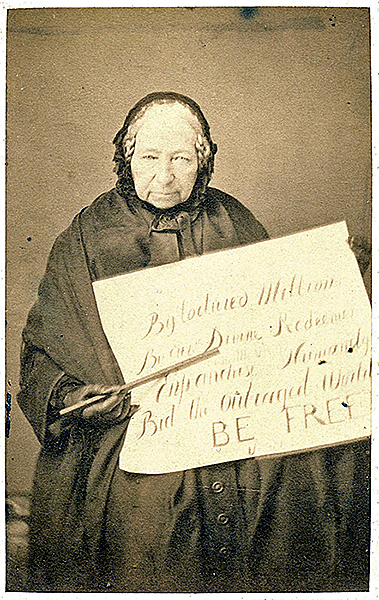 By tortured Millions
By the Divine Redeemer
Enfranchise Humanity
Bid the Outraged World
BE FREE